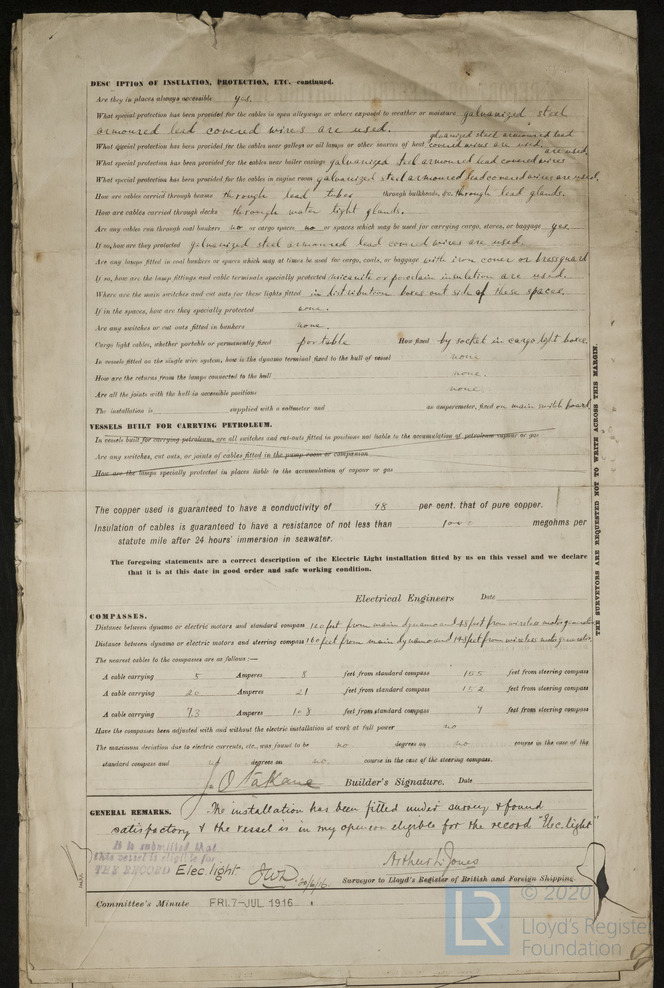 DESC IPTION OF INSULATION, PROTECTION, ETC. continued.
Are they in places always accessible yes.
What special protection has been provided for the cables in open alleyways or where exposed to weather or moisture galvanized steel
armoured lead covered wires are used.
galvanized steel armoured lead
What special protection has been provided for the cables near galleys or oil lamps or other sources of heat covered wires are used.
are used,
What special protection has been provided for the cables near boiler casings galvanized steel armoured lead covered wires
What special protection has been provided for the cables in engine room galvanized steel armoured lead covered wires are used.
How are cables carried through beams through lead tubes through bulkheads, &c. through lead glands.
How are cables carried through decks through water tight glands.
Are any cables run through coal bunkers no or cargo spaces no or spaces which may be used for carrying cargo, stores, or baggage yes.
If so, how are they protected galvanized steel armoured lead covered wires are used.
Are any lamps fitted in coal bunkers or spaces which may at times be used for cargo, coals, or baggage with iron cover or brassguard
If so, how are the lamp fittings and cable terminals specially protected micanite or porclain insulation are used.
Where are the main switches and cut outs for these lights fitted in distribution boxes out side of these spaces.
If in the spaces, how are they specially protected none.
Are any switches or cut outs fitted in bunkers none.
Cargo light cables, whether portable or permanently fixed portable How fixed by socket in cargo light boxes.
In vessels fitted on the single wire system, how is the dynamo terminal fixed to the hull of vessel none
How are the returns from the lamps connected to the hull none.
Are all the joints with the hull in accessible positions none
The installation is supplied with a voltmeter and an amperemeter, fixed on main switch board
VESSELS BUILT FOR CARRYING PETROLEUM.
In vessels built for carrying petroleum, are all switches and cut-outs fitted in positions not liable to the accumulation of petroleum vapour or gas
Are any switches, cut outs, or joints of cables fitted in the pump room or companion
How are the lamps specially protected in places liable to the accumulation of vapour or gas
The copper used is guaranteed to have a conductivity of 98 per cent. that of pure copper.
Insulation of cables is guaranteed to have a resistance of not less than 1000 megohms per
statute mile after 24 hours' immersion in seawater.
The foregoing statements are a correct description of the Electric Light installation fitted by us on this vessel and we declare
that it is at this date in good order and safe working condition.
Electrical Engineers Date
COMPASSES.
Distance between dynamo or electric motors and standard compass feet from main dynamo and feet from wireless motor generator
Distance between dynamo or electric motors and steering compass feet from main dynamo and feet from wireless motor generator
The nearest cables to the compasses are as follows:—
A cable carrying 5 Amperes 8 feet from standard compass 155 feet from steering compass
A cable carrying 20 Amperes 21 feet from standard compass 152 feet from steering compass
A cable carrying 7.3 Amperes 108 feet from standard compass feet from steering compass
Have the compasses been adjusted with and without the electric installation at work at full power no
The maximum deviation due to electric currents, etc., was found to be no degrees on no course in the case of the
standard compass and degrees on no. course in the case of the steering compass.
Builder's Signature. Date
GENERAL REMARKS. The installation has been fitted under survey & found
satisfactory & the vessel is in my opinion eligible for the record "Elec. light"
It is submitted that
this vessel is eligible for
THE RECORD Elec. light
Arthur L. Jones
Surveyor to Lloyd's Register of British and Foreign Shipping.
Committee's Minute FRI. 7-JUL 1916
THE SURVEYORS ARE REQUESTED NOT TO WRITE ACROSS THIS MARGIN.
© 2020
LR
Lloyd's Register
Foundation